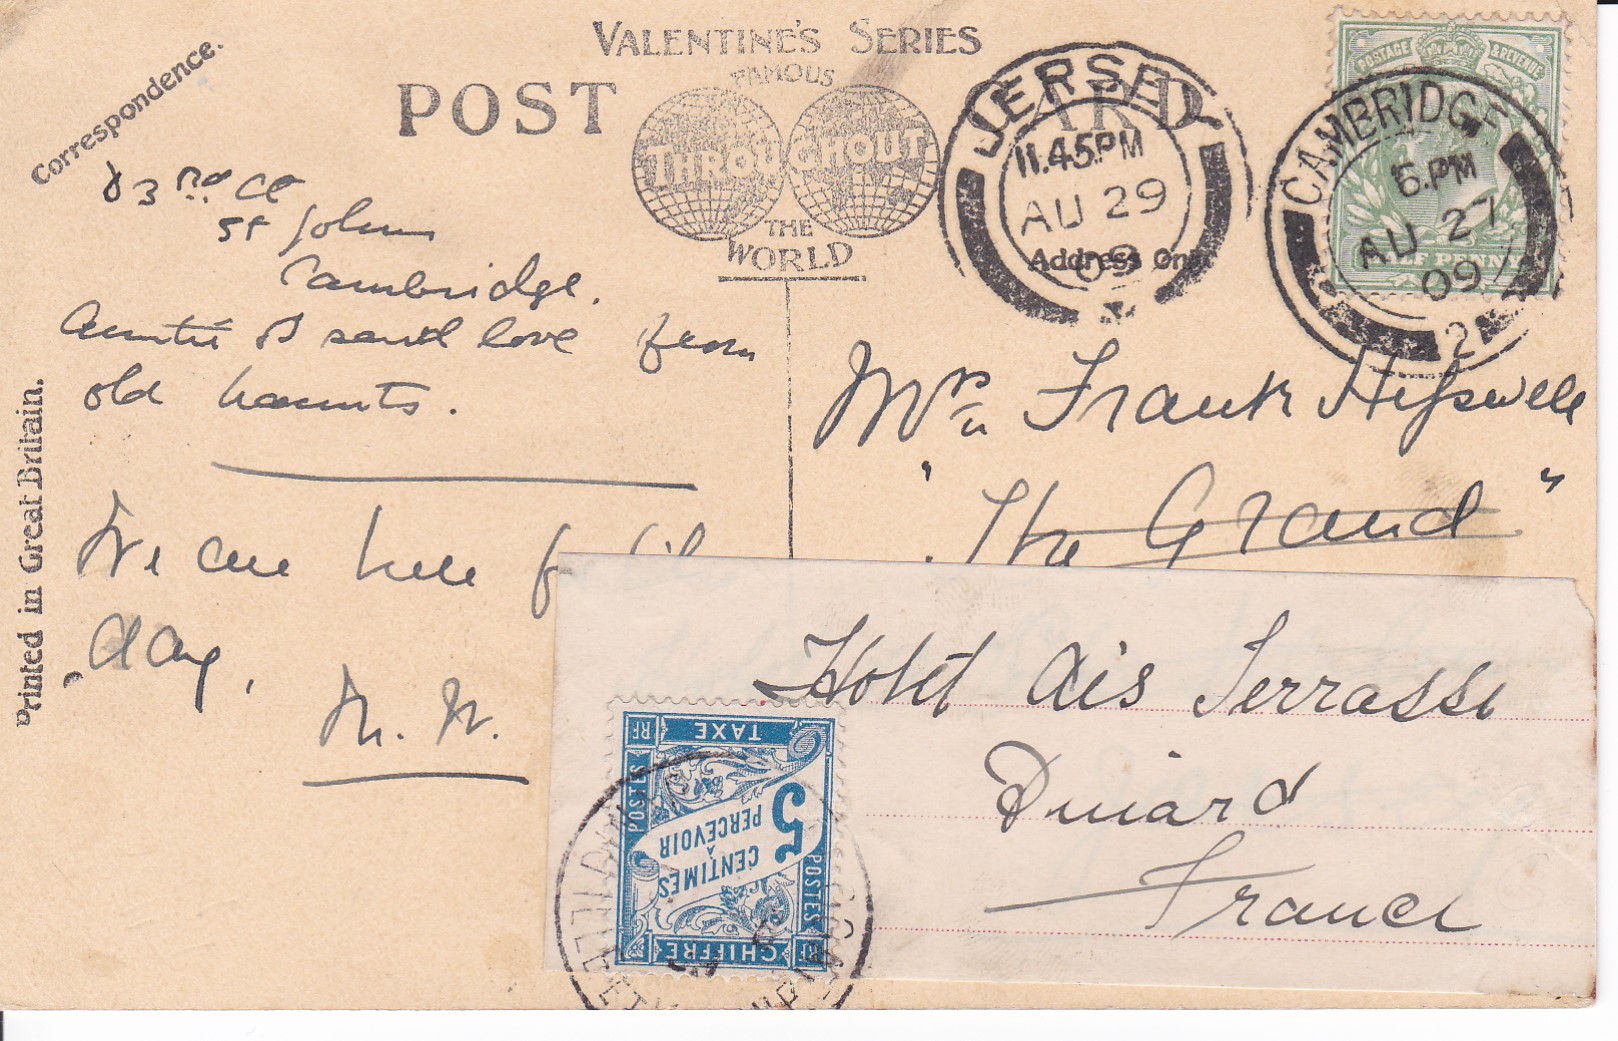 VALENTINE'S SERIES
FAMOUS
THROUGHOUT
THE
WORLD
POST CARD
Correspondence.
Address Only
Printed in Great Britain.
JERSEY
11.45PM
AU 29
09
CAMBRIDGE
5.PM
AU 27
09
2
POSTAGE & REVENUE
HALF PENNY
3rd Ct
St Johns
Cambridge.
Auntie & I send love from
old haunts.
We are here for
day.
M. W.
Mrs Frank
"The Grand"
Hotel des Terrasses
Dinard
France
CHIFFRE
TAXE
POSTES
POSTES
RF
RF
5
CENTIMES
À
PERCEVOIR